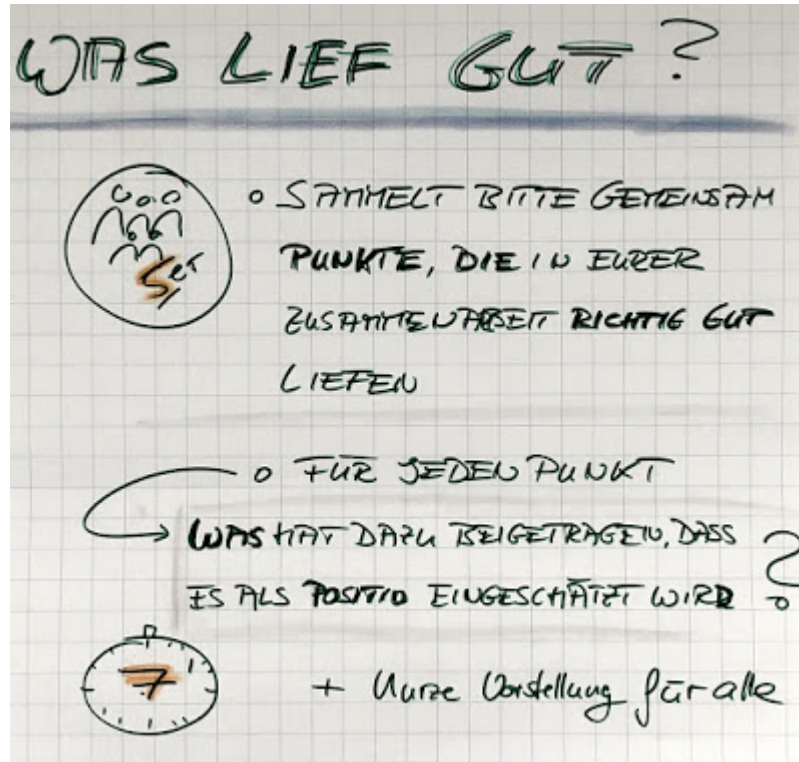 WAS LIEF GUT?
○ SAMMELT BITTE GEMEINSAM
PUNKTE, DIE IN EURER
ZUSAMMENARBEIT RICHTIG GUT
LIEFEN
5er
○ FÜR JEDEN PUNKT
WAS HAT DAZU BEIGETRAGEN, DASS
ES ALS POSITIV EINGESCHÄTZT WIRD?
7
+ Kurze Vorstellung für alle